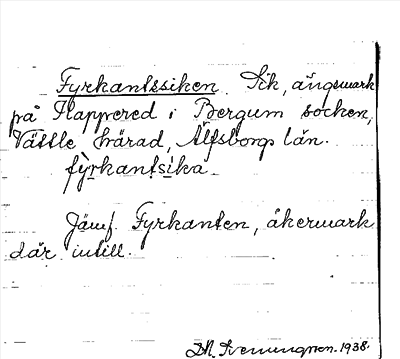 Fyrkantssiken. Sik, ängsmark
på Flappered i Bergum socken,
Vättle härad, Älfsborgs län.
fyrkantsika.
Jämf. Fyrkanten, åkermark
där intill.
1938.